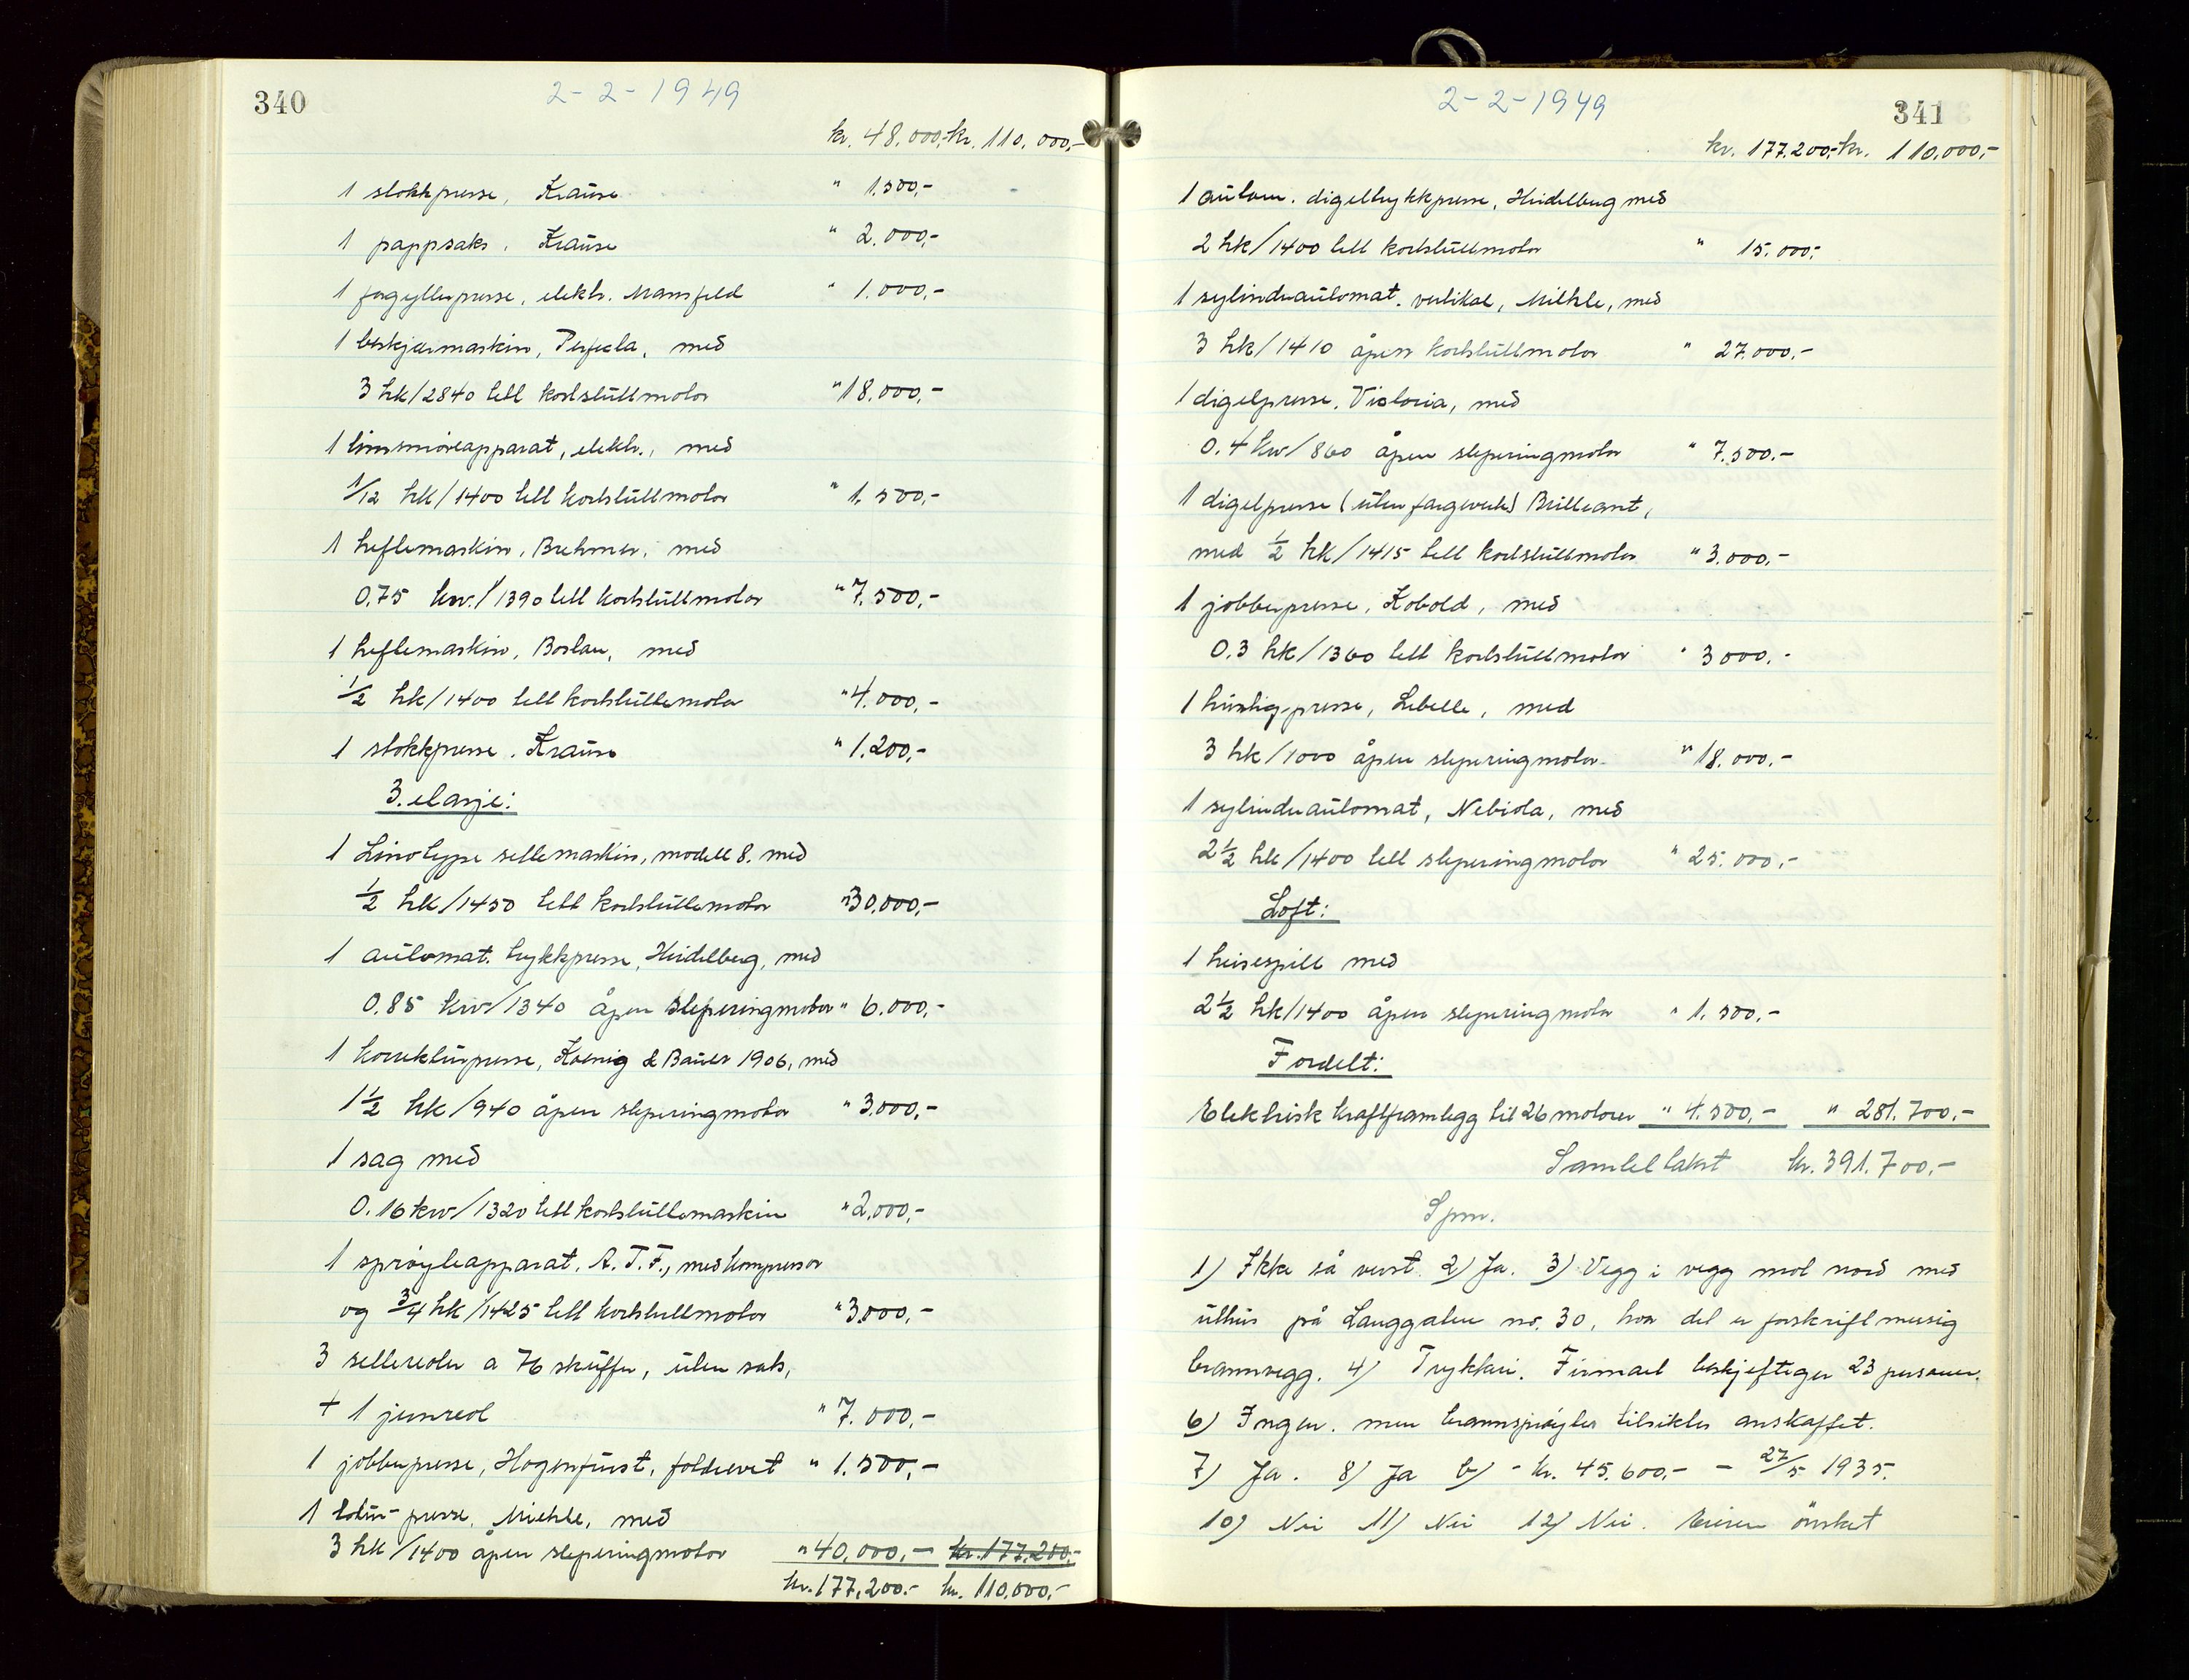 340
2-2-1949
kr. 48.000,- kr. 110.000,-
1 stokkpresse, Krause " 1.500,-
1 pappsaks, Krause " 2.000,-
1 forgyllerpresse, elektr. Mansfeld " 1.000,-
1 beskjærmaskin, Perfecta, med
3 hk/2840 lett kortsluttmotor " 18.000,-
1 limsmøreapparat, elektr., med
1/12 hk/1400 lett kortsluttmotor " 1.500,-
1 heftemaskin, Brehmer, med
0,75 kw./1390 lett kortsluttmotor " 7.500,-
1 heftemaskin, Boston, med
1/2 hk/1400 lett kortsluttmotor " 4.000,-
1 stokkpresse, Krause " 1.200,-
3. etasje:
1 Linotype settemaskin, modell 8, med
1/2 hk/1450 lett kortsluttmotor " 30.000,-
1 automat. trykkpresse, Heidelberg, med
0.85 kw/1340 åpen sleperingmotor " 6.000,-
1 korrekturpresse, Koenig & Bauer 1906, med
1 1/2 hk/940 åpen sleperingmotor " 3.000,-
1 sag med
0.16 kw/1320 lett kortsluttmaskin " 2.000,-
1 sprøyteapparat, A.T.F., med kompressor
og 3/4 hk/1425 lett kortsluttmotor " 3.000,-
3 settereoler a 76 skuffer, uten sats,
+ 1 jernreol " 7.000,-
1 jobberpresse, Hogenforst, fotdrevet " 1.500,-
1 presse, Miehle, med
3 hk/1400 åpen sleperingmotor " 40.000,- kr. 177.200,-
kr. 177.200.- kr. 110.000,-
2-2-1949
341
kr. 177.200,- kr. 110.000,-
1 autom. digeltrykkpresse, Heidelberg med
2 hk/1400 lett kortsluttmotor " 15.000,-
1 sylinderautomat. vertikal, Miehle, med
3 hk/1410 åpen kortsluttmotor " 27.000,-
1 digelpresse, Victoria, med
0.4 kw/860 åpen sleperingmotor " 7.500.-
1 digelpresse (uten fargeverk) Brilleant,
med 1/2 hk/1415 lett kortsluttmotor " 3.000,-
1 jobberpresse, Kobold, med
0.3 hk/1360 lett kortsluttmotor " 3000.-
1 hurtig-presse, Lebelle, med
3 hk/1000 åpen sleperingmotor " 18.000.-
1 sylinderautomat, Nebiola, med
2 1/2 hk/1400 lett sleperingmotor " 25.000,-
Loft:
1 heisespill med
2 1/2 hk/1400 åpen sleperingmotor " 1.500,-
Fordelt:
Elektrisk kraftframlegg til 26 motorer " 4.500,- " 281.700,-
Samlet takst kr. 391.700.-
Spm.
1) Ikke så verst. 2) Ja. 3) Vegg i vegg mot nord med
uthus på Langgaten nr. 30, hvor det er forskriftmessig
brannvegg. 4) Trykkeri. Firmaet beskjeftiger 23 personer.
6) Ingen. men brannsprøyter tilsiktes anskaffet.
7) Ja. 8) Ja b) - kr. 45.600.- - 27/5 1935.
10) Nei 11) Nei 12) Nei. Eieren ønsket